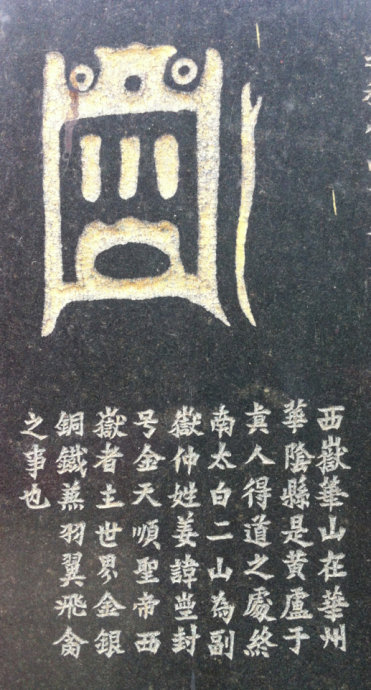 西嶽華山在華州
華陰縣是黃盧子
真人得道之處終
南太白二山為副
嶽仲姓姜諱壘封
号金天順聖帝西
嶽者主世界金銀
銅鐵蒸羽翼飛禽
之事也